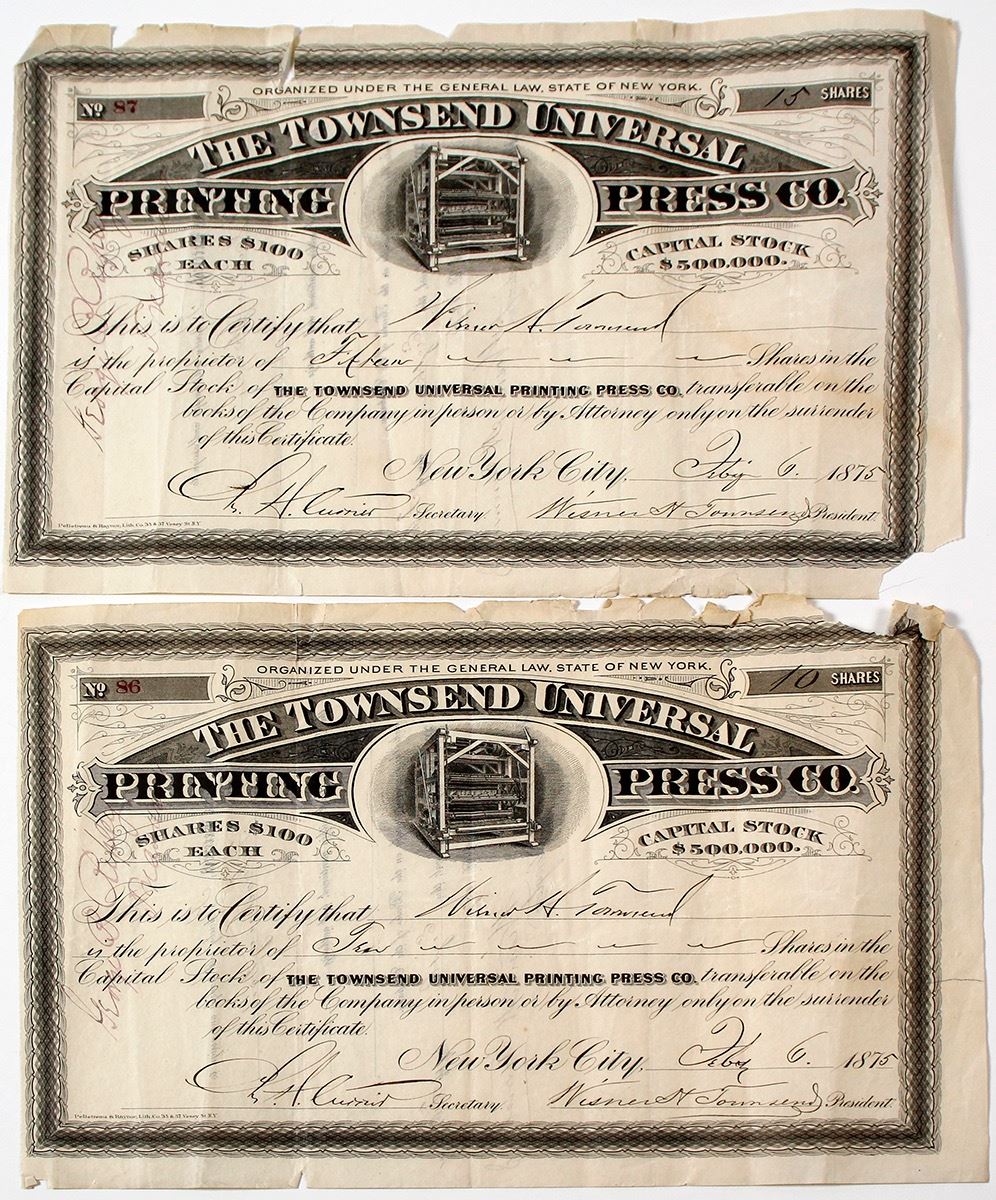 ORGANIZED UNDER THE GENERAL LAW, STATE OF NEW YORK.
No 87
15 SHARES
THE TOWNSEND UNIVERSAL
PRINTING PRESS CO.
SHARES $100 EACH
CAPITAL STOCK $500.000.
This is to Certify that Wisner H. Townsend
is the proprietor of Fifteen Shares in the
Capital Stock of THE TOWNSEND UNIVERSAL PRINTING PRESS CO. transferable on the
books of the Company in person or by Attorney only on the surrender
of this Certificate.
New York City, Feby 6. 1875
Secretary. Wisner H Townsend President.
Pelletreau & Raynor, Lith. Co. 35 & 37 Vesey St. N.Y.
ORGANIZED UNDER THE GENERAL LAW, STATE OF NEW YORK.
No 86
10 SHARES
THE TOWNSEND UNIVERSAL
PRINTING PRESS CO.
SHARES $100 EACH
CAPITAL STOCK $500.000.
This is to Certify that Wisner H. Townsend
is the proprietor of Ten Shares in the
Capital Stock of THE TOWNSEND UNIVERSAL PRINTING PRESS CO. transferable on the
books of the Company in person or by Attorney only on the surrender
of this Certificate.
New York City, Feby 6. 1875
Secretary. Wisner H Townsend President.
Pelletreau & Raynor, Lith. Co. 35 & 37 Vesey St. N.Y.